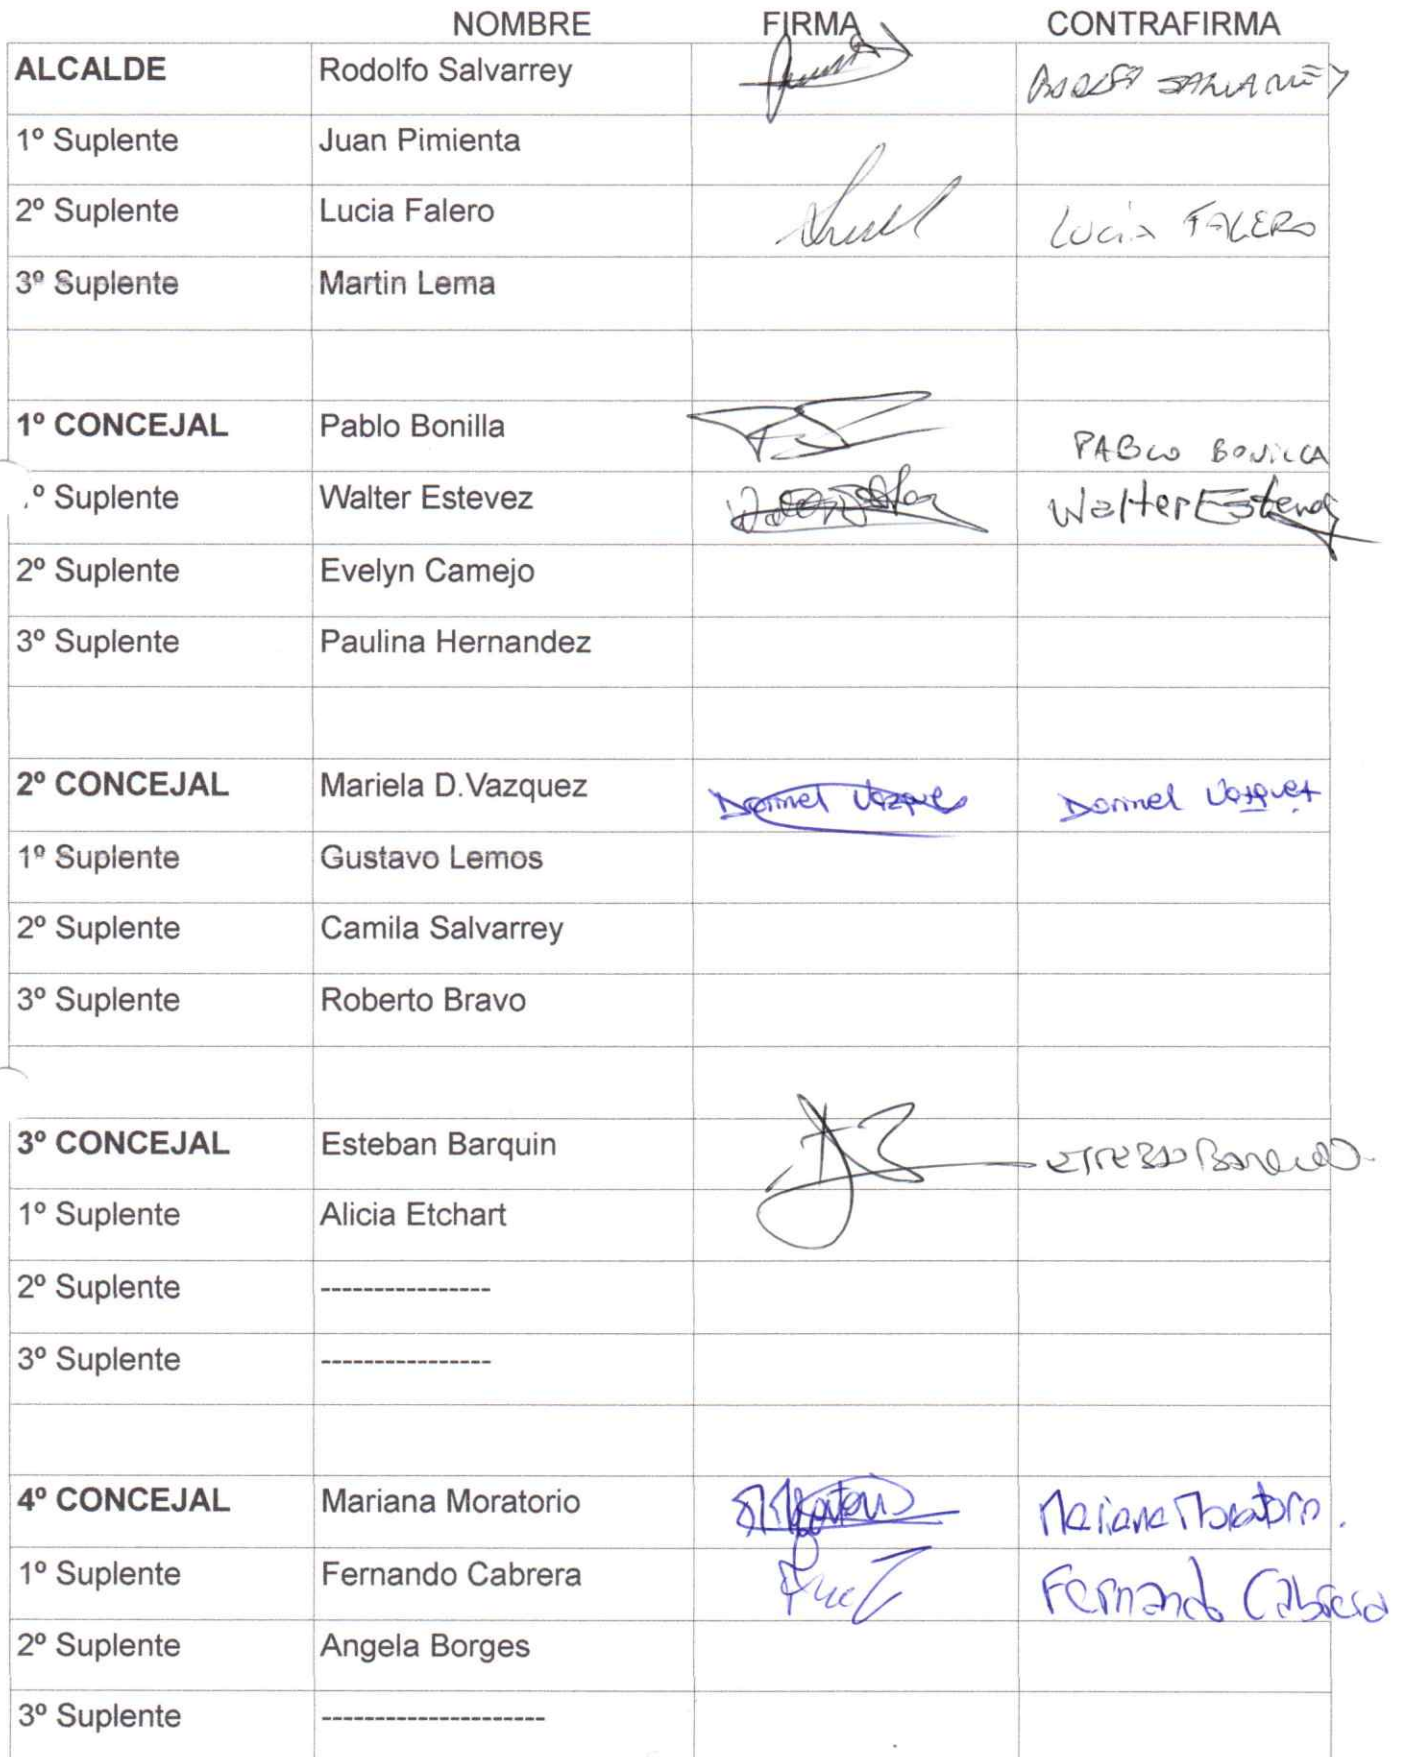 NOMBRE FIRMA CONTRAFIRMA
ALCALDE Rodolfo Salvarrey RODOLFO SALVARREY
1º Suplente Juan Pimienta
2º Suplente Lucia Falero Lucía FALERO
3º Suplente Martin Lema
1º CONCEJAL Pablo Bonilla PABLO BONILLA
.º Suplente Walter Estevez Walter Estevez
2º Suplente Evelyn Camejo
3º Suplente Paulina Hernandez
2º CONCEJAL Mariela D.Vazquez Dormel Vazquez Dormel Vazquez
1º Suplente Gustavo Lemos
2º Suplente Camila Salvarrey
3º Suplente Roberto Bravo
3º CONCEJAL Esteban Barquin ESTEBAN BARQUIN
1º Suplente Alicia Etchart
2º Suplente ----------------
3º Suplente ----------------
4º CONCEJAL Mariana Moratorio Mariana Moratorio.
1º Suplente Fernando Cabrera Fernando Cabrera
2º Suplente Angela Borges
3º Suplente ---------------------